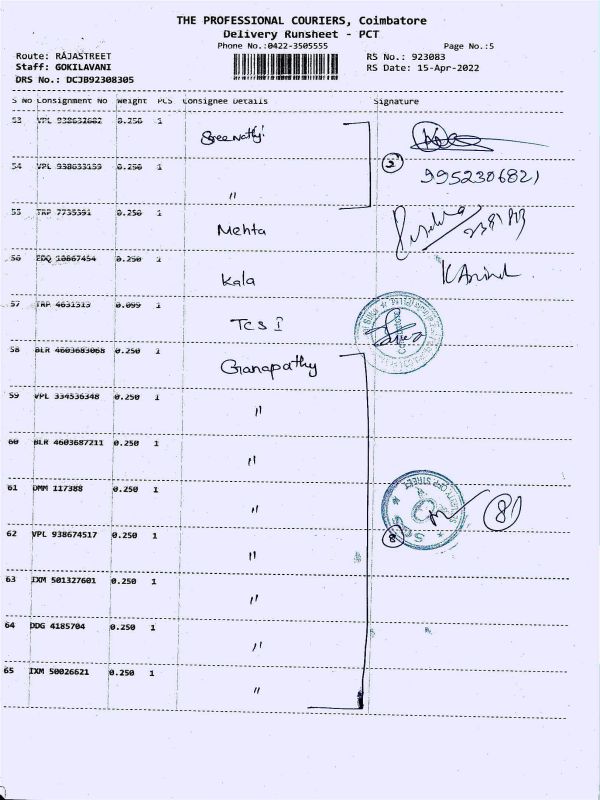 THE PROFESSIONAL COURIERS, Coimbatore
Delivery Runsheet - PCT
Phone No.:0422-3505555 Page No.:5
Route: RAJASTREET RS No.: 923083
Staff: GOKILAVANI RS Date: 15-Apr-2022
DRS No.: DCJB92308305
S No Consignment No Weight PCS Consignee Details Signature
53 VPL 0.250 1
54 VPL 938633159 0.250 1 "
2
9952306821
55 TRP 7735391 0.250 1 Mehta
56 EDQ 10867454 0.250 1 Kala K Arvind
57 TRP 4631513 0.099 1 TCS I
58 BLR 4603683068 0.250 1 Ganapathy
59 VPL 334536348 0.250 1 "
60 BLR 4603687211 0.250 1 "
61 DMM 117388 0.250 1 "
8
62 VPL 938674517 0.250 1 "
8
63 IXM 501327601 0.250 1 "
64 DDG 4185704 0.250 1 "
65 IXM 50026621 0.250 1 "